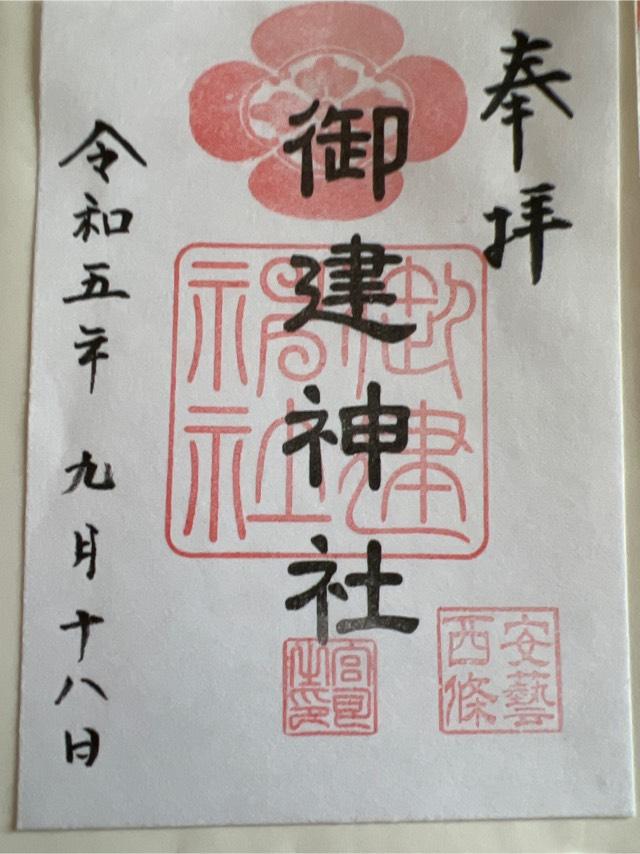 奉拝
御建神社
御建神社
安藝西條
宮司之印
令和五年九月十八日